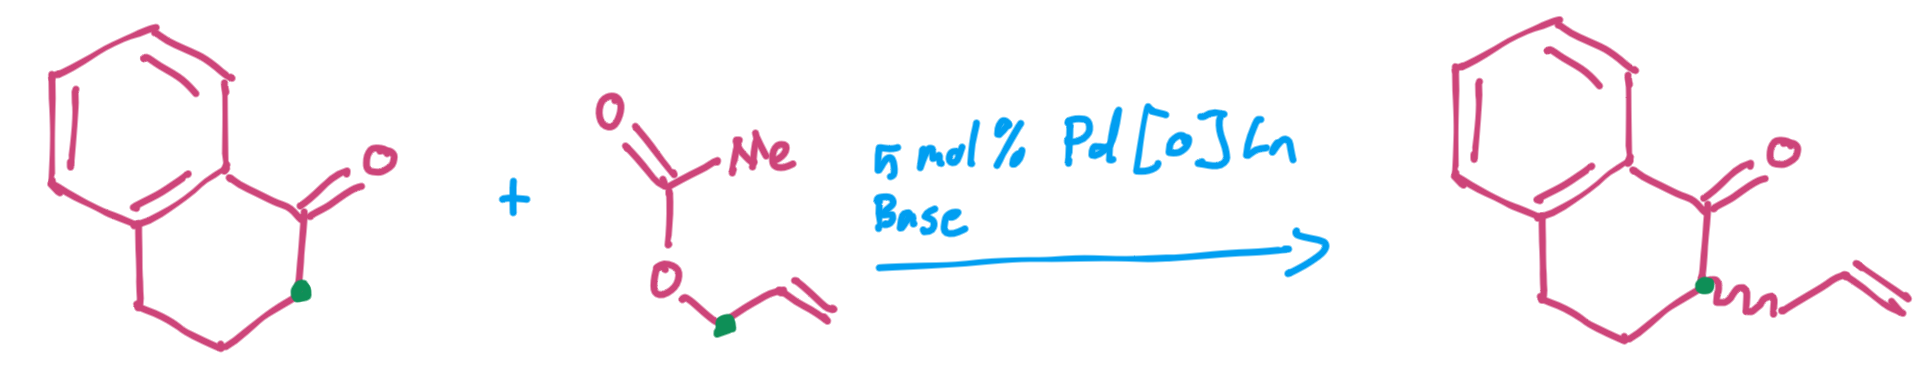 O
+
O
Me
O
5 mol% Pd[0]Ln
Base
O